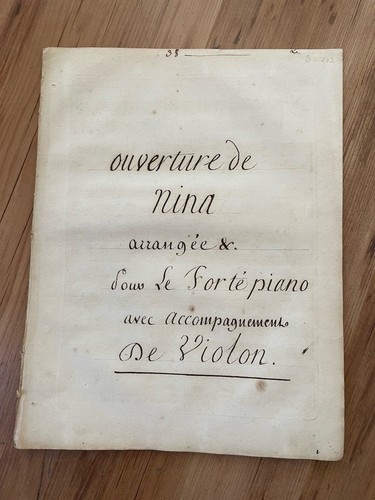 38 2
ouverture de
Nina
arrangée &.
pour Le Forté piano
avec Accompagnement
De Violon.